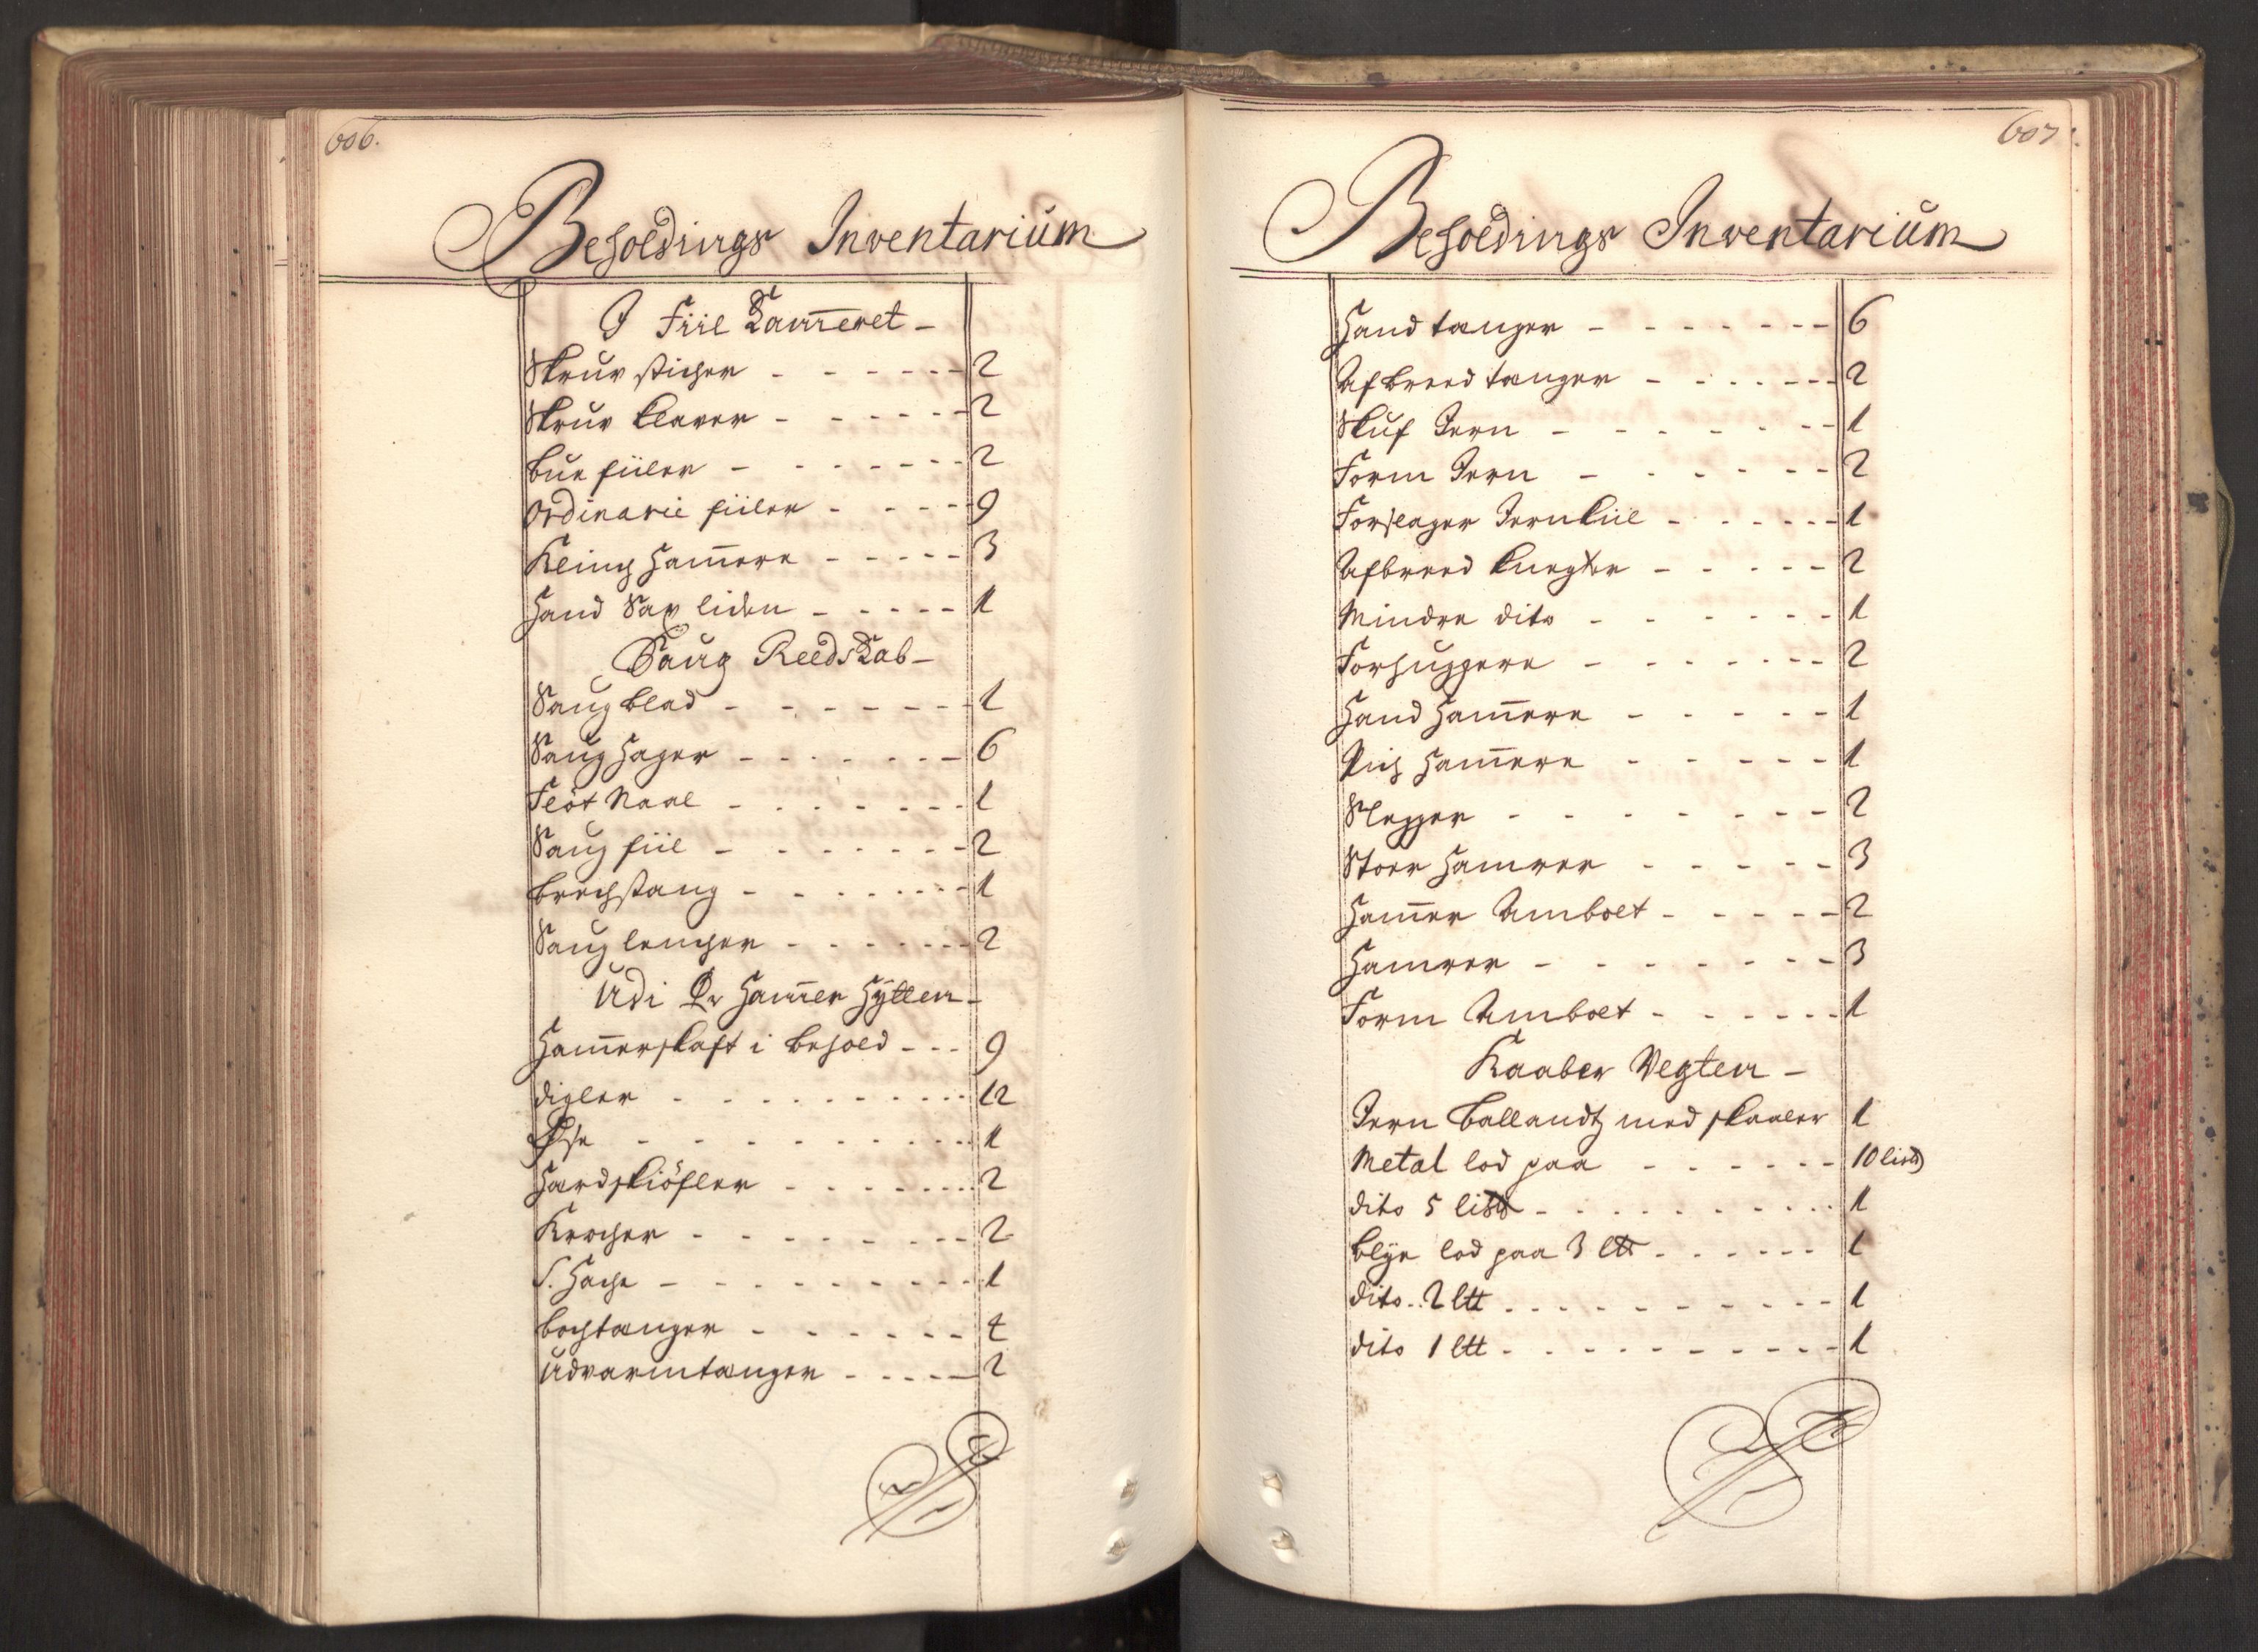 606.
Beholdings Inventarium
I Fiil Kam̅eret
Skruv sticher 2
Skruv klaver 2
bue fiiler 2
Ordinarie fiiler 9
Kling Ham̅ere 3
Hand Sax liden 1
Saug Reedskab
Saugblad 1
Saug Hager 6
Flöt Naal 1
Saug fiil 2
brechstang 1
Saug lencher 2
Udi Ham̅er Hytten
Ham̅erskaft i behold 9
digler 12
Øse 1
Hardskiöfler 2
Krocher 2
S. Hache 1
bochtanger 4
Udvarmtanger 2
607.
Beholdings Inventarium
Hand tanger 6
Afbreed tanger 2
Skuf Jern 1
Form Jern 2
Forslager Jernkiil 1
Afbreed knegter 2
Mindre dito 1
Forhuggere 2
Hand Ham̅ere 1
Pich Ham̅ere 1
Slegger 2
Stoer Hamrer 3
Ham̅er Ambolt 2
Hamrer 3
Form Ambolt 1
Kaaber Vegten
Jern Ballandtz med skaaler 1
Metal lod paa 10 lis℔
dito 5 lis℔ 1
blye lod paa 3 l℔ 1
dito 2 l℔ 1
dito 1 l℔ 1